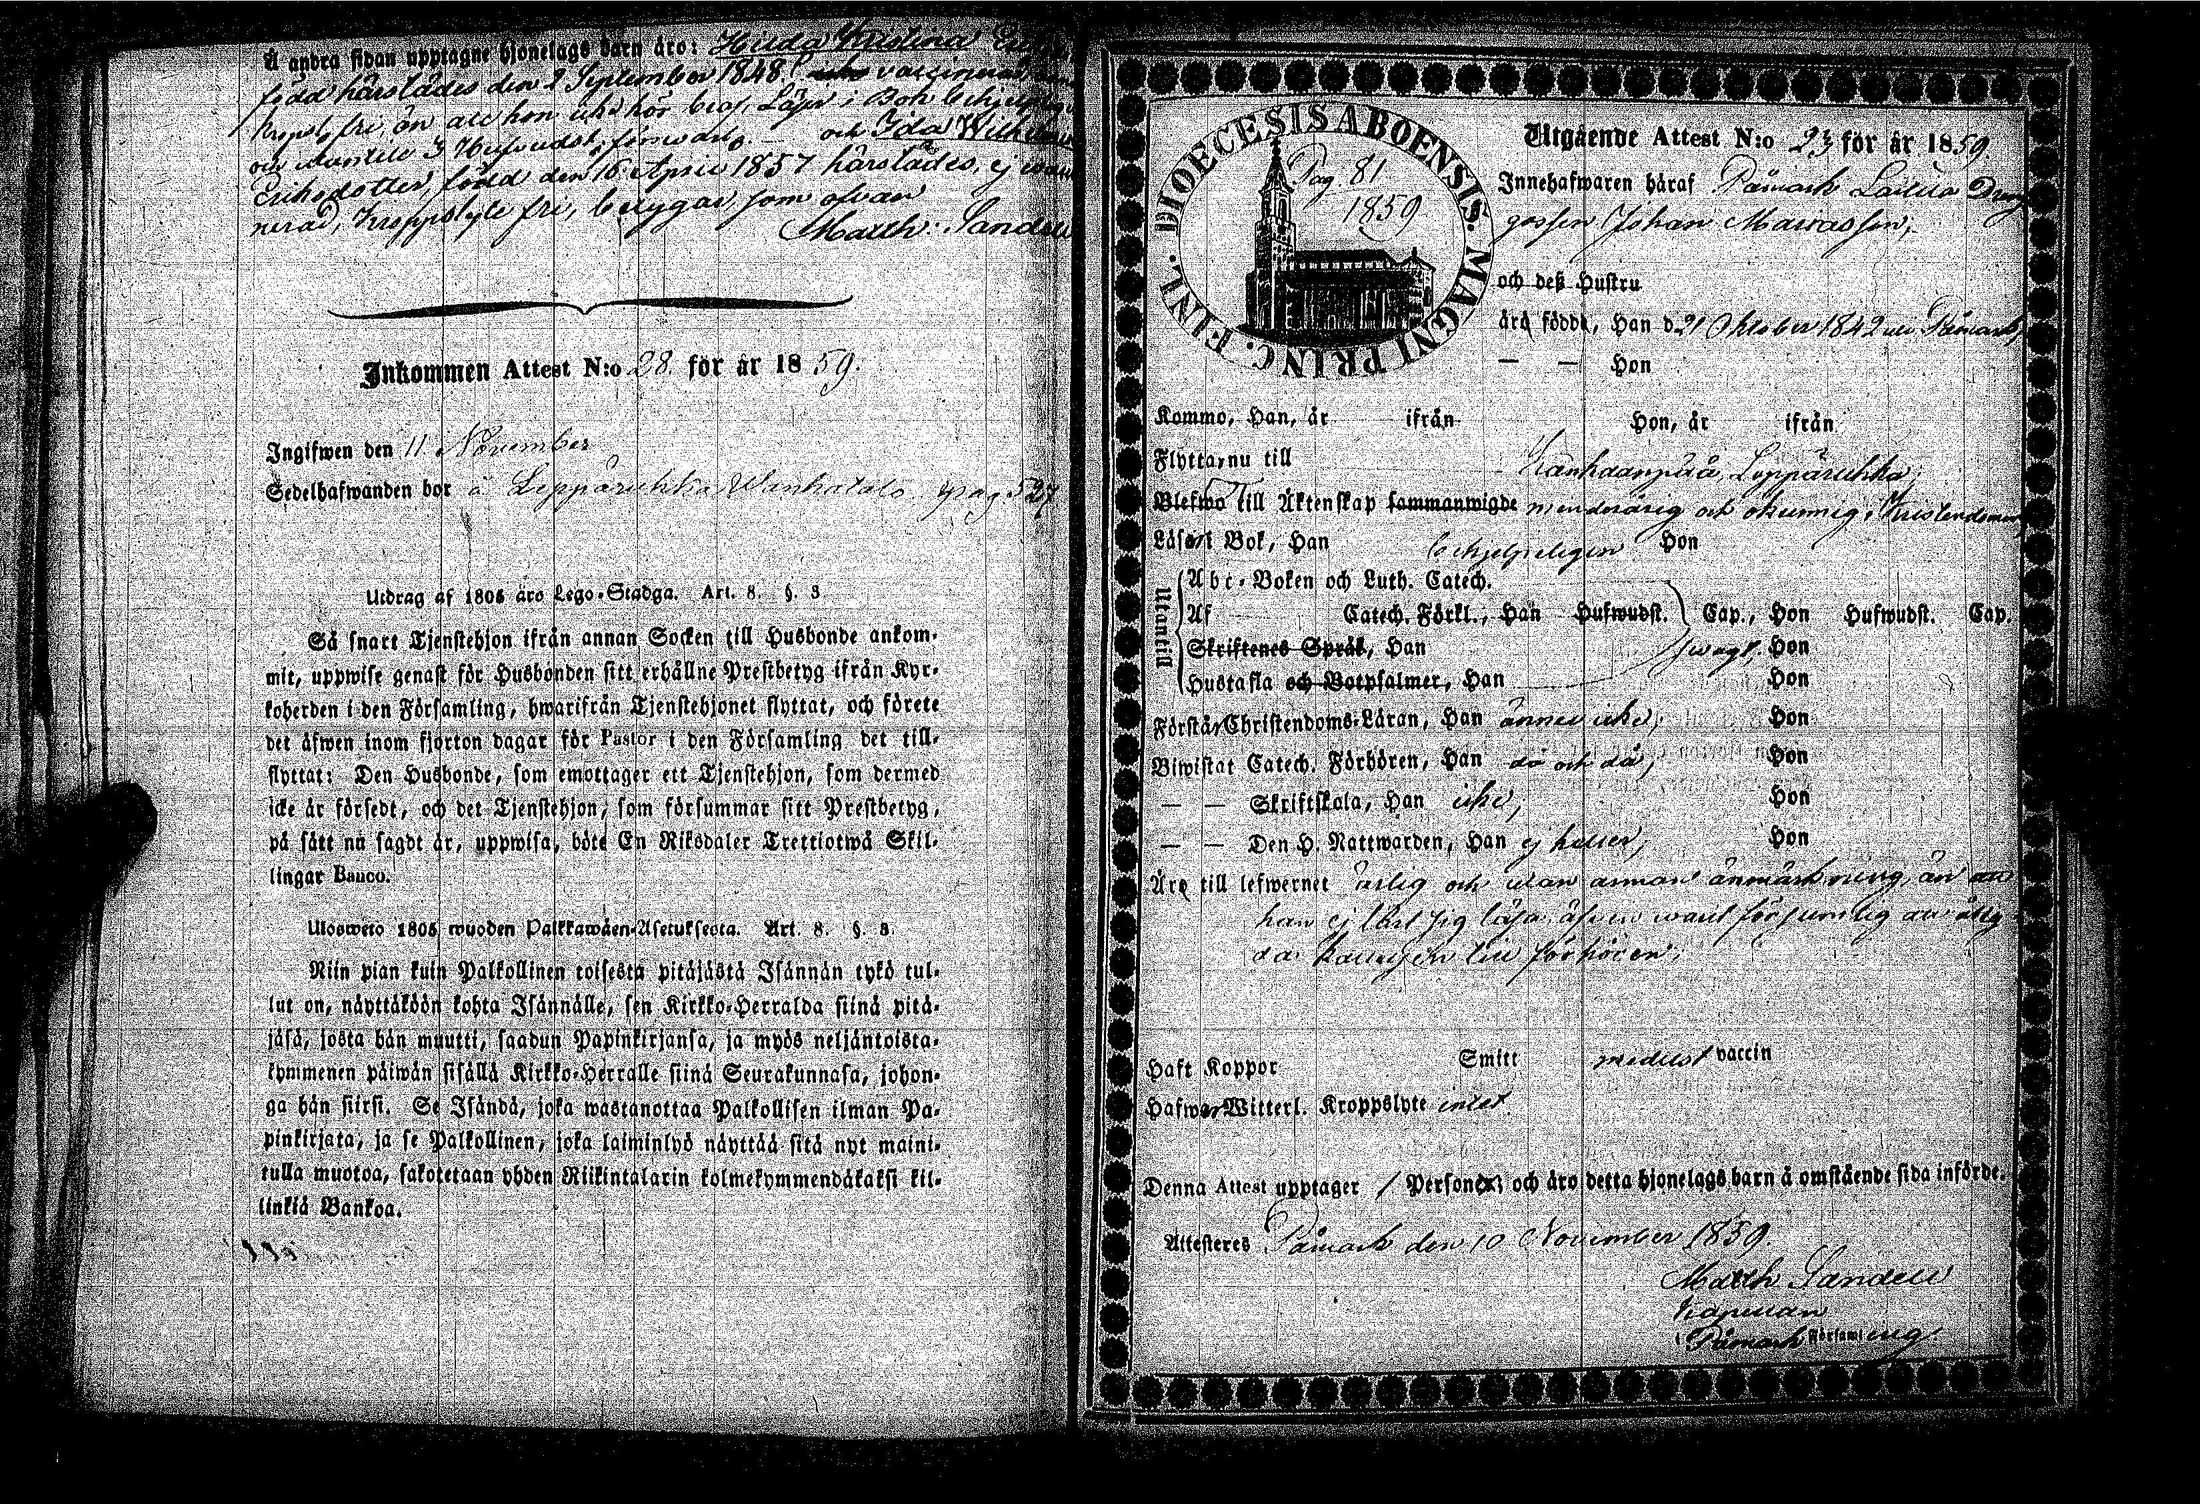 Å andra sidan upptagne hjonelags barn äro: Hilda Kristina
född härstädes den 2 September 1848, vaccinerad
fri, än att hon icke hör bra, Läser i Bok behjelpligen
och utantill 3 Hufvudst. försvarlig. och Ida Wilhelmina
Eriksdotter, född den 16 April 1857 härstädes, ej vacci-
nerad, kroppslyte fri, betygar, som ofvan
Matth. Sandell
Inkommen Attest N:o 28 för år 1859.
Ingifwen den 11 November
Sedelhafwanden bor å Leppäruhka Wanhatalo pag. 527
Utdrag af 1805 års Lego-Stadga. Art. 8. §. 3
Så snart Tjenstehjon ifrån annan Socken till Husbonde ankom-
mit, uppwise genast för Husbonden sitt erhållne Prestbetyg ifrån Kyr-
koherden i den Församling, hwarifrån Tjenstehjonet flyttat, och förete
det äfwen inom fjorton dagar för Pastor i den Församling det till-
flyttat: Den Husbonde, som emottager ett Tjenstehjon, som dermed
icke är försedt, och det Tjenstehjon, som försummar sitt Prestbetyg,
på sätt nu sagdt är, uppwisa, böte En Riksdaler Trettiotwå Skil-
lingar Banco.
Ulosweto 1805 wuoden Palkkawäen-Asetuksesta. Art. 8. §. 3.
Niin pian kuin Palkollinen toisesta pitäjästä Isännän tykö tul-
lut on, näyttäköön kohta Isännälle, sen Kirkko-Herralda siinä pitä-
jäsä, josta hän muutti, saadun Papinkirjansa, ja myös neljäntoista-
kymmenen päiwän sisällä Kirkko-Herralle siinä Seurakunnasa, johon-
ga hän siirsi. Se Isändä, joka wastanottaa Palkollisen ilman Pa-
pinkirjata, ja se Palkollinen, joka laiminlyö näyttää sitä nyt maini-
tulla muotoa, sakotetaan yhden Riikintalarin kolmekymmendäkaksi kil-
linkiä Bankoa.
DIOECESIS ABOENSIS. MAGNI PRINC. FINL.
Pag. 81
1859
Utgående Attest N:o 23 för år 1859.
Innehafwaren häraf Påmark Lassila Dreng
gossen Johan Mattasson,
och deß Hustru
äro födde, Han d. 21 Oktober 1842 uti Påmark,
— — Hon
Kommo, Han, år ifrån Hon, år ifrån
Flyttar nu till Kankaanpää, Leppäruhka,
Blefwo till Äktenskap sammanwigde minderårig och okunnig i Kristendomen
Läser i Bok, Han behjelpeligen Hon
Utantill
Abc-Boken och Luth. Catech.
Af Catech. Förkl., Han Hufwudst. Cap., Hon Hufwudst. Cap.
Skriftenes Språk, Han swagt, Hon
Hustafla och Botpsalmer, Han Hon
Förstår Christendoms-Läran, Han ännu icke, Hon
Biwistat Catech. Förhören, Han då och då, Hon
— — Skriftskola, Han icke, Hon
— — Den H. Nattwarden, Han ej heller, Hon
Äro till lefwernet ärlig och utan annan anmärkning, än att
han ej lärt sig läsa, äfven warit försumlig att åtly-
da kallelser till förhören.
Haft Koppor Smitt medelst vaccin
Hafwer Witterl. Kroppslyte intet
Denna Attest upptager 1 Person och äro detta hjonelags barn å omstående sida införde.
Attesteres Påmark den 10 November 1859.
Matth Sandell
Kapellan
i Påmark Församling.